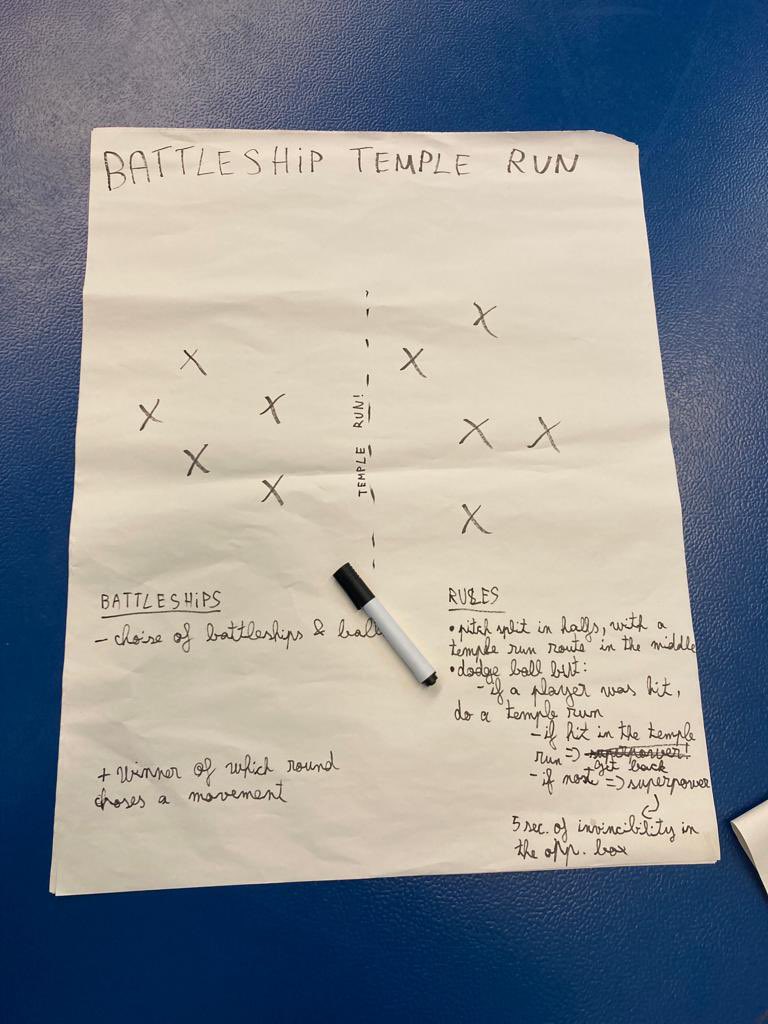 BATTLESHIP TEMPLE RUN
X
X
X
X
X
X
X
X
X
X
TEMPLE RUN!
BATTLESHIPS
- choise of battleships & ball
+ Winner of which round
choses a movement
RULES
• pitch split in halfs, with a
temple run route in the middle
• dodge ball but:
- if a player was hit,
do a temple run
- if hit in the temple
run => superpower!
get back
- if not => superpower
5 sec. of invincibility in
the opp. box